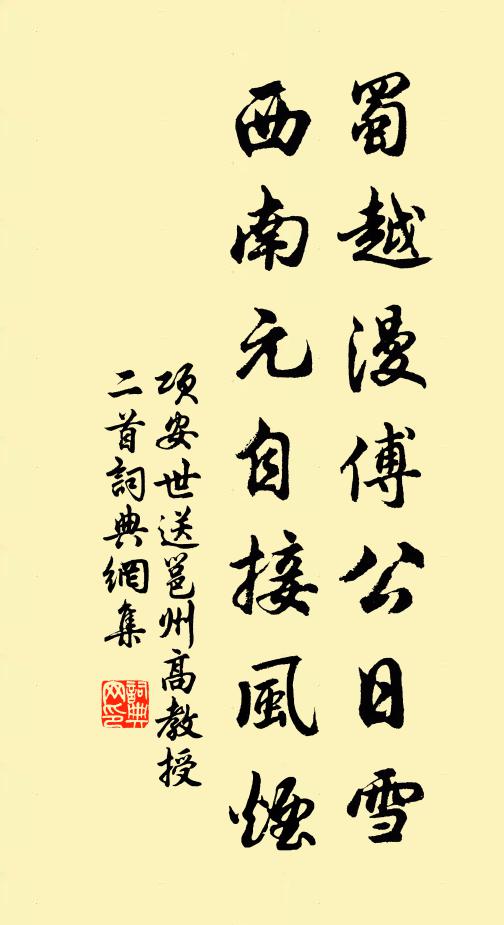 蜀越漫傅公日雪
西南元自接風煙
項安世送邕州高教授
二首詞典網集
詞典
网印